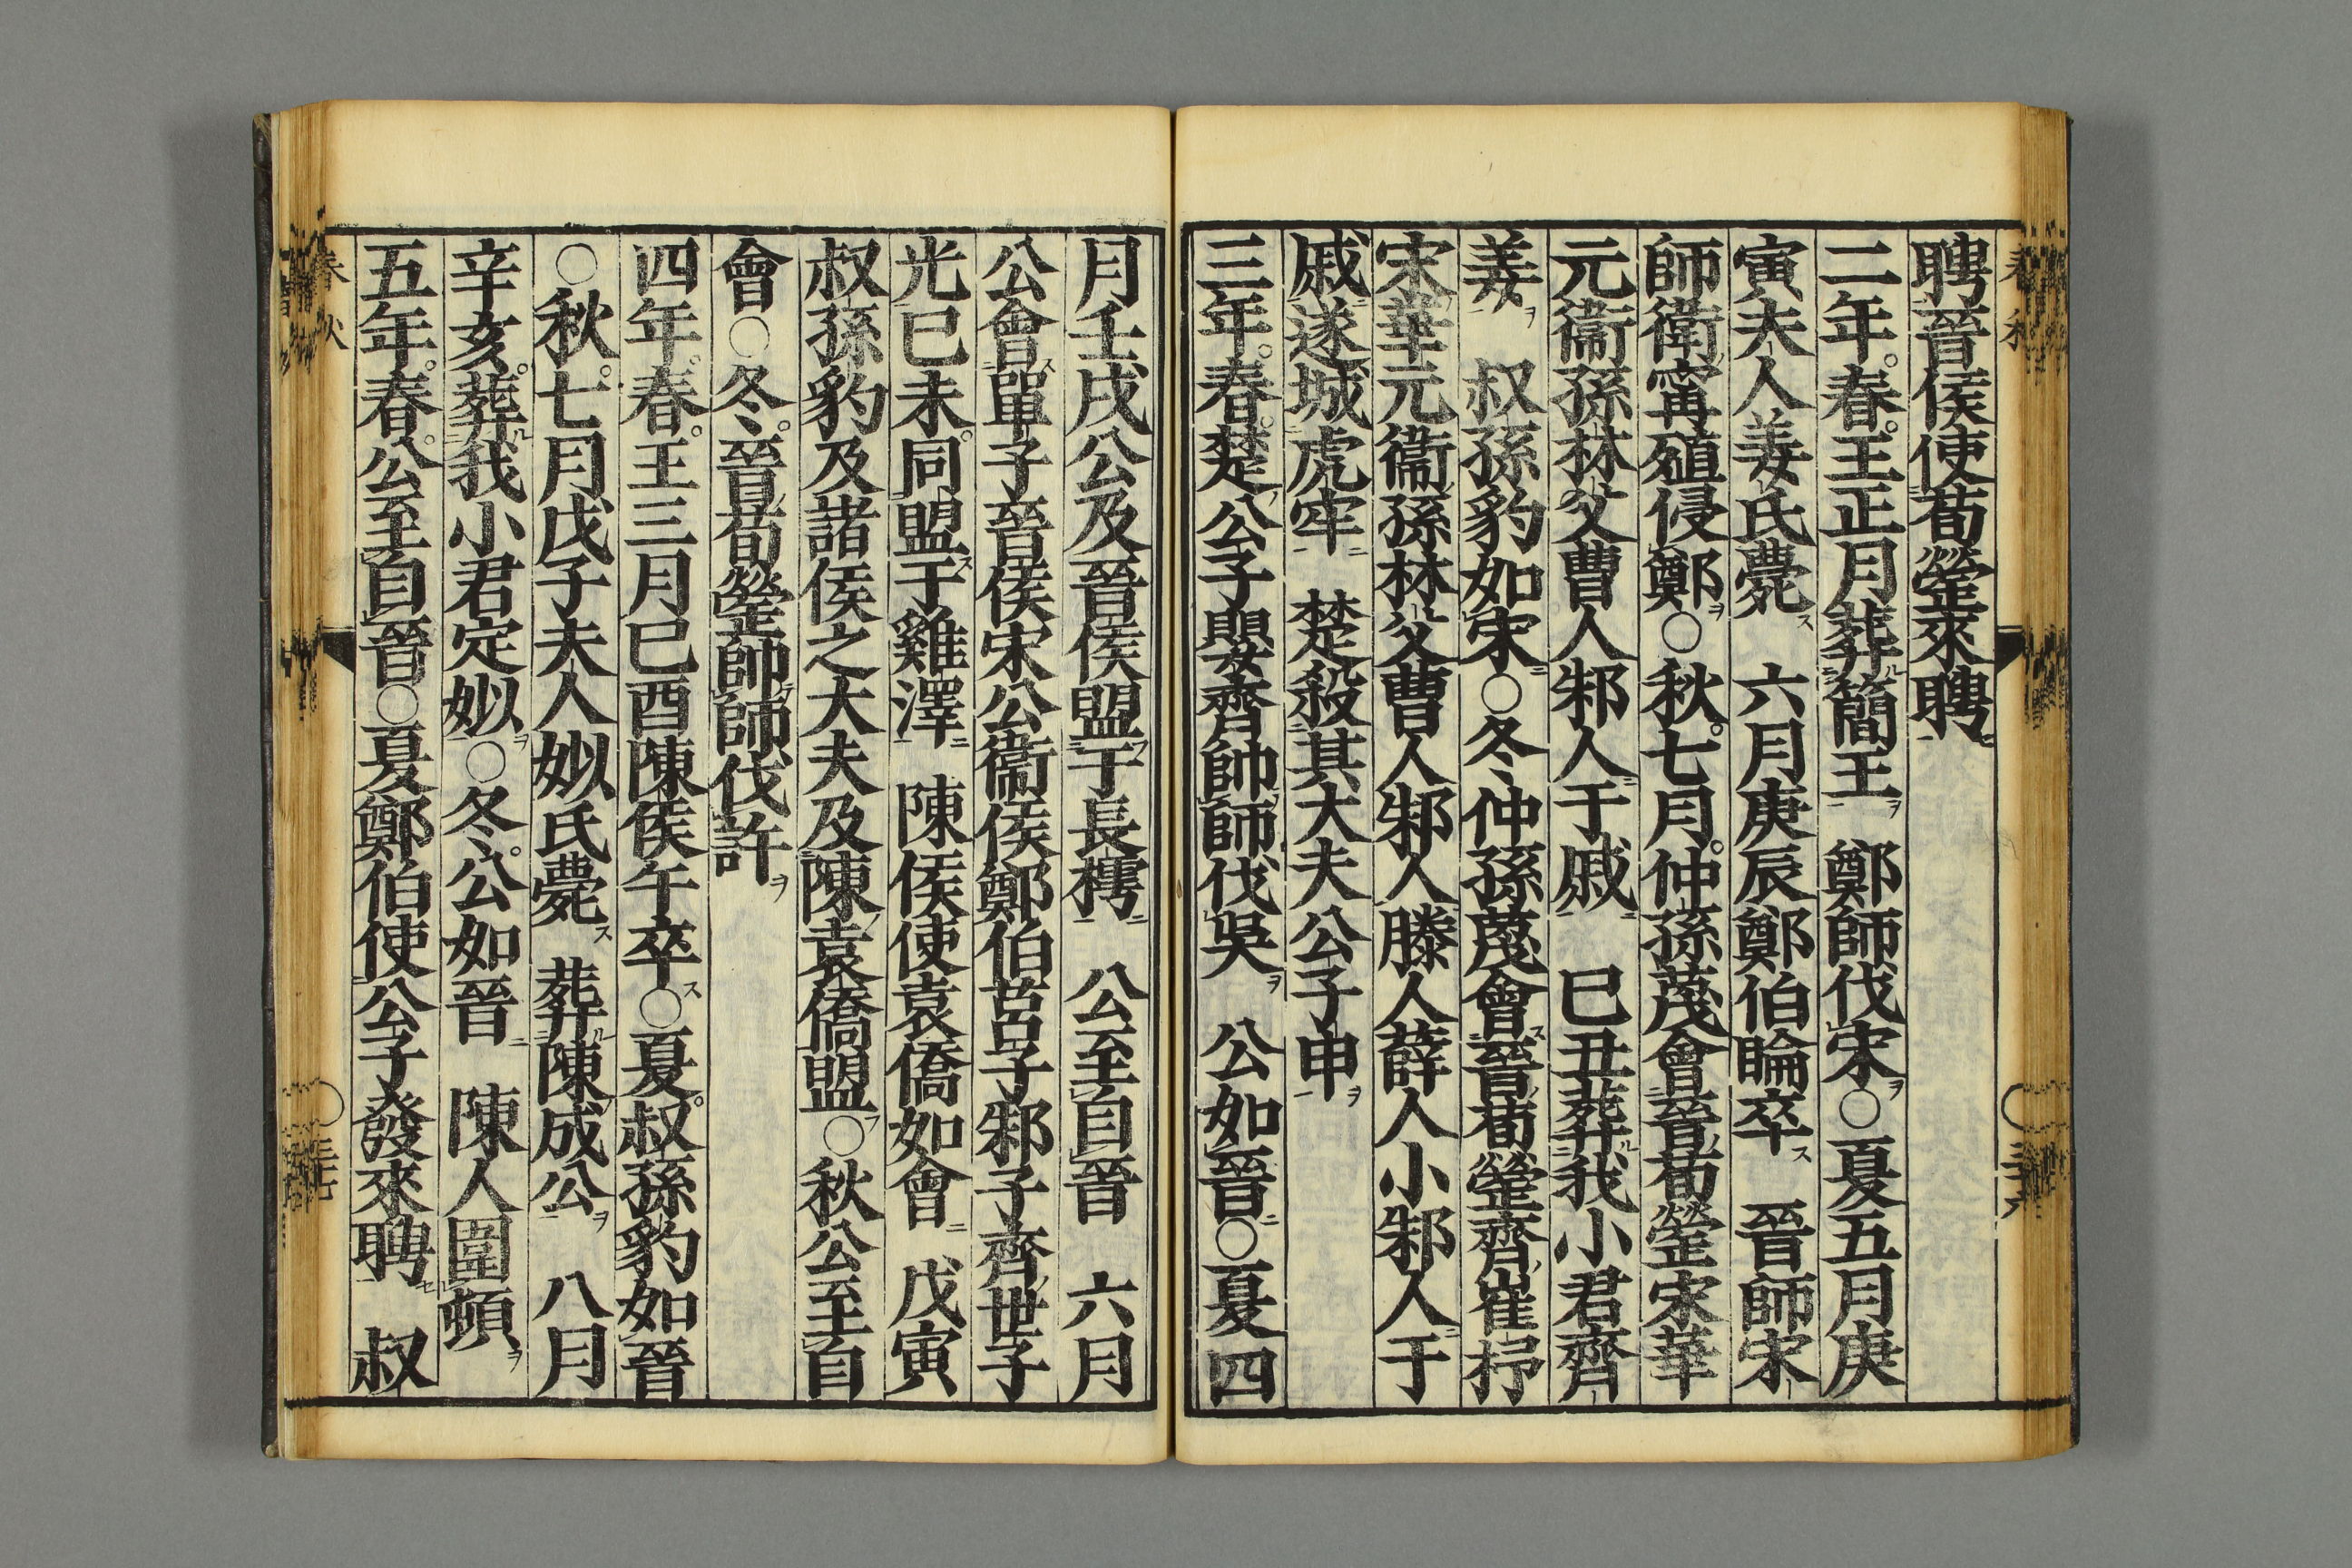 聘晉侯使荀罃來聘
二年春王正月葬簡王　鄭師伐宋○夏五月庚
寅夫人姜氏薨　六月庚辰鄭伯睔卒　晉師宋
師衛甯殖侵鄭○秋七月仲孫蔑會晉荀罃宋華
元衞孫林父曹人邾人于戚　己丑葬我小君齊
姜　叔孫豹如宋○冬仲孫蔑會晉荀罃齊崔杼
宋華元衞孫林父曹人邾人滕人薛人小邾人于
戚遂城虎牢　楚殺其大夫公子申
三年春楚公子嬰齊帥師伐吳　公如晉○夏四
月壬戌公及晉侯盟于長樗　公至自晉　六月
公會單子晉侯宋公衞侯鄭伯莒子邾子齊世子
光已未同盟于雞澤　陳侯使袁僑如會　戊寅
叔孫豹及諸侯之大夫及陳袁僑盟○秋公至自
會○冬晉荀罃帥師伐許
四年春王三月已酉陳侯午卒○夏叔孫豹如晉
○秋七月戊子夫人姒氏薨　葬陳成公　八月
辛亥葬我小君定姒○冬公如晉　陳人圍頓
五年春公至自晉○夏鄭伯使公子發來聘　叔
春秋